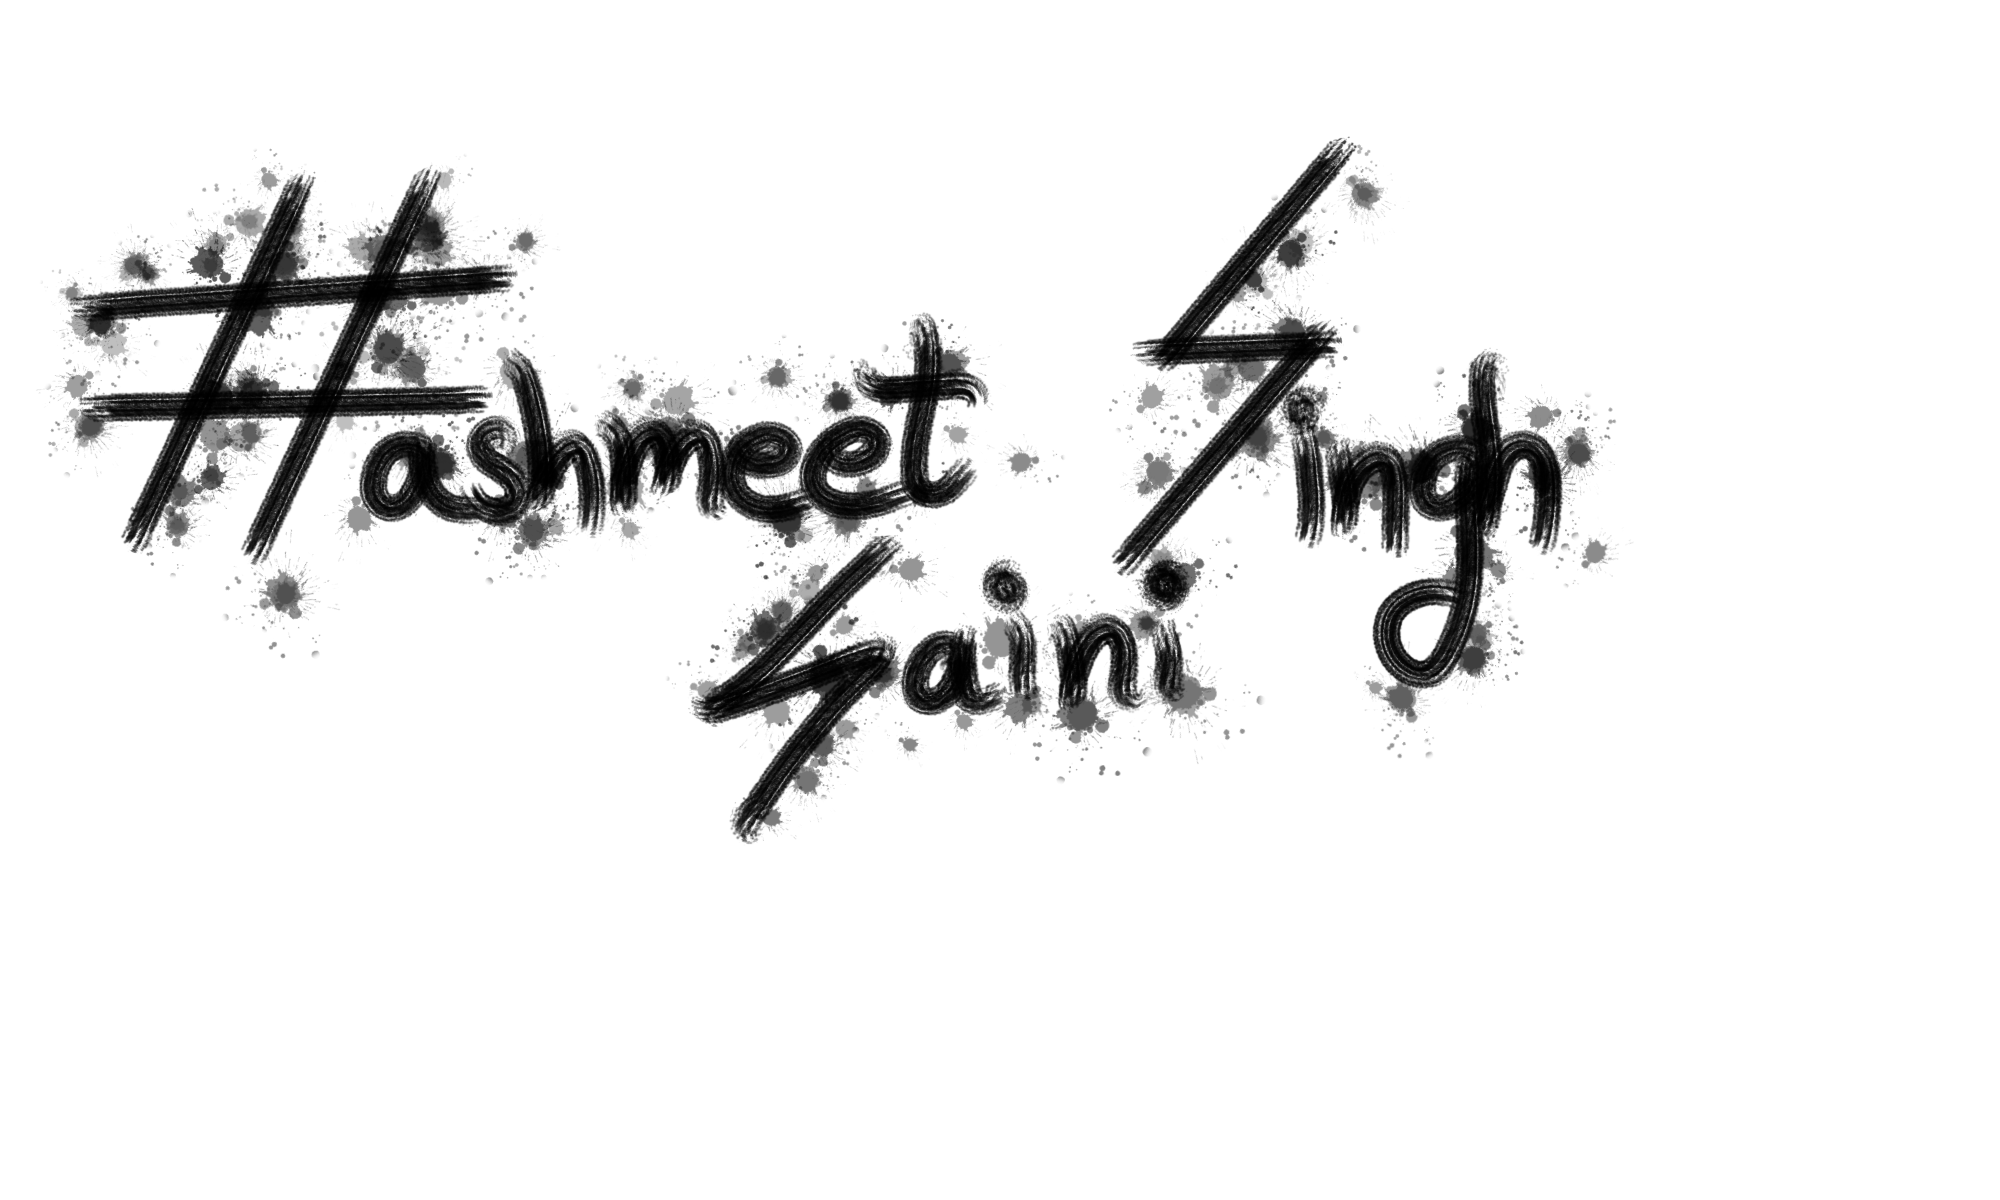 #ashmeet Singh
Saini